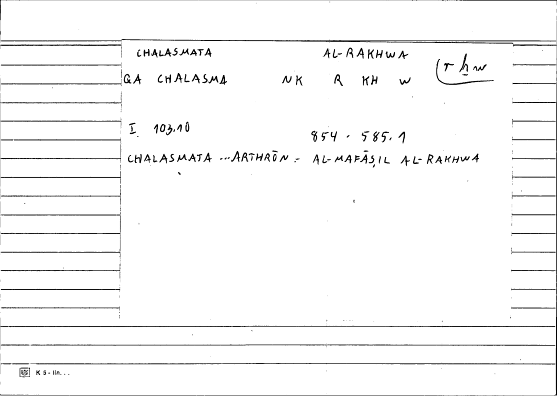 CHALASMATA AL-RAKHWA
r ḫ w
GA CHALASMA NK R KH W
I 103.10 854 - 585.1
CHALASMATA ... ARTHRŌN - AL-MAFĀṢIL AL-RAKHWA
K 5 - lin...